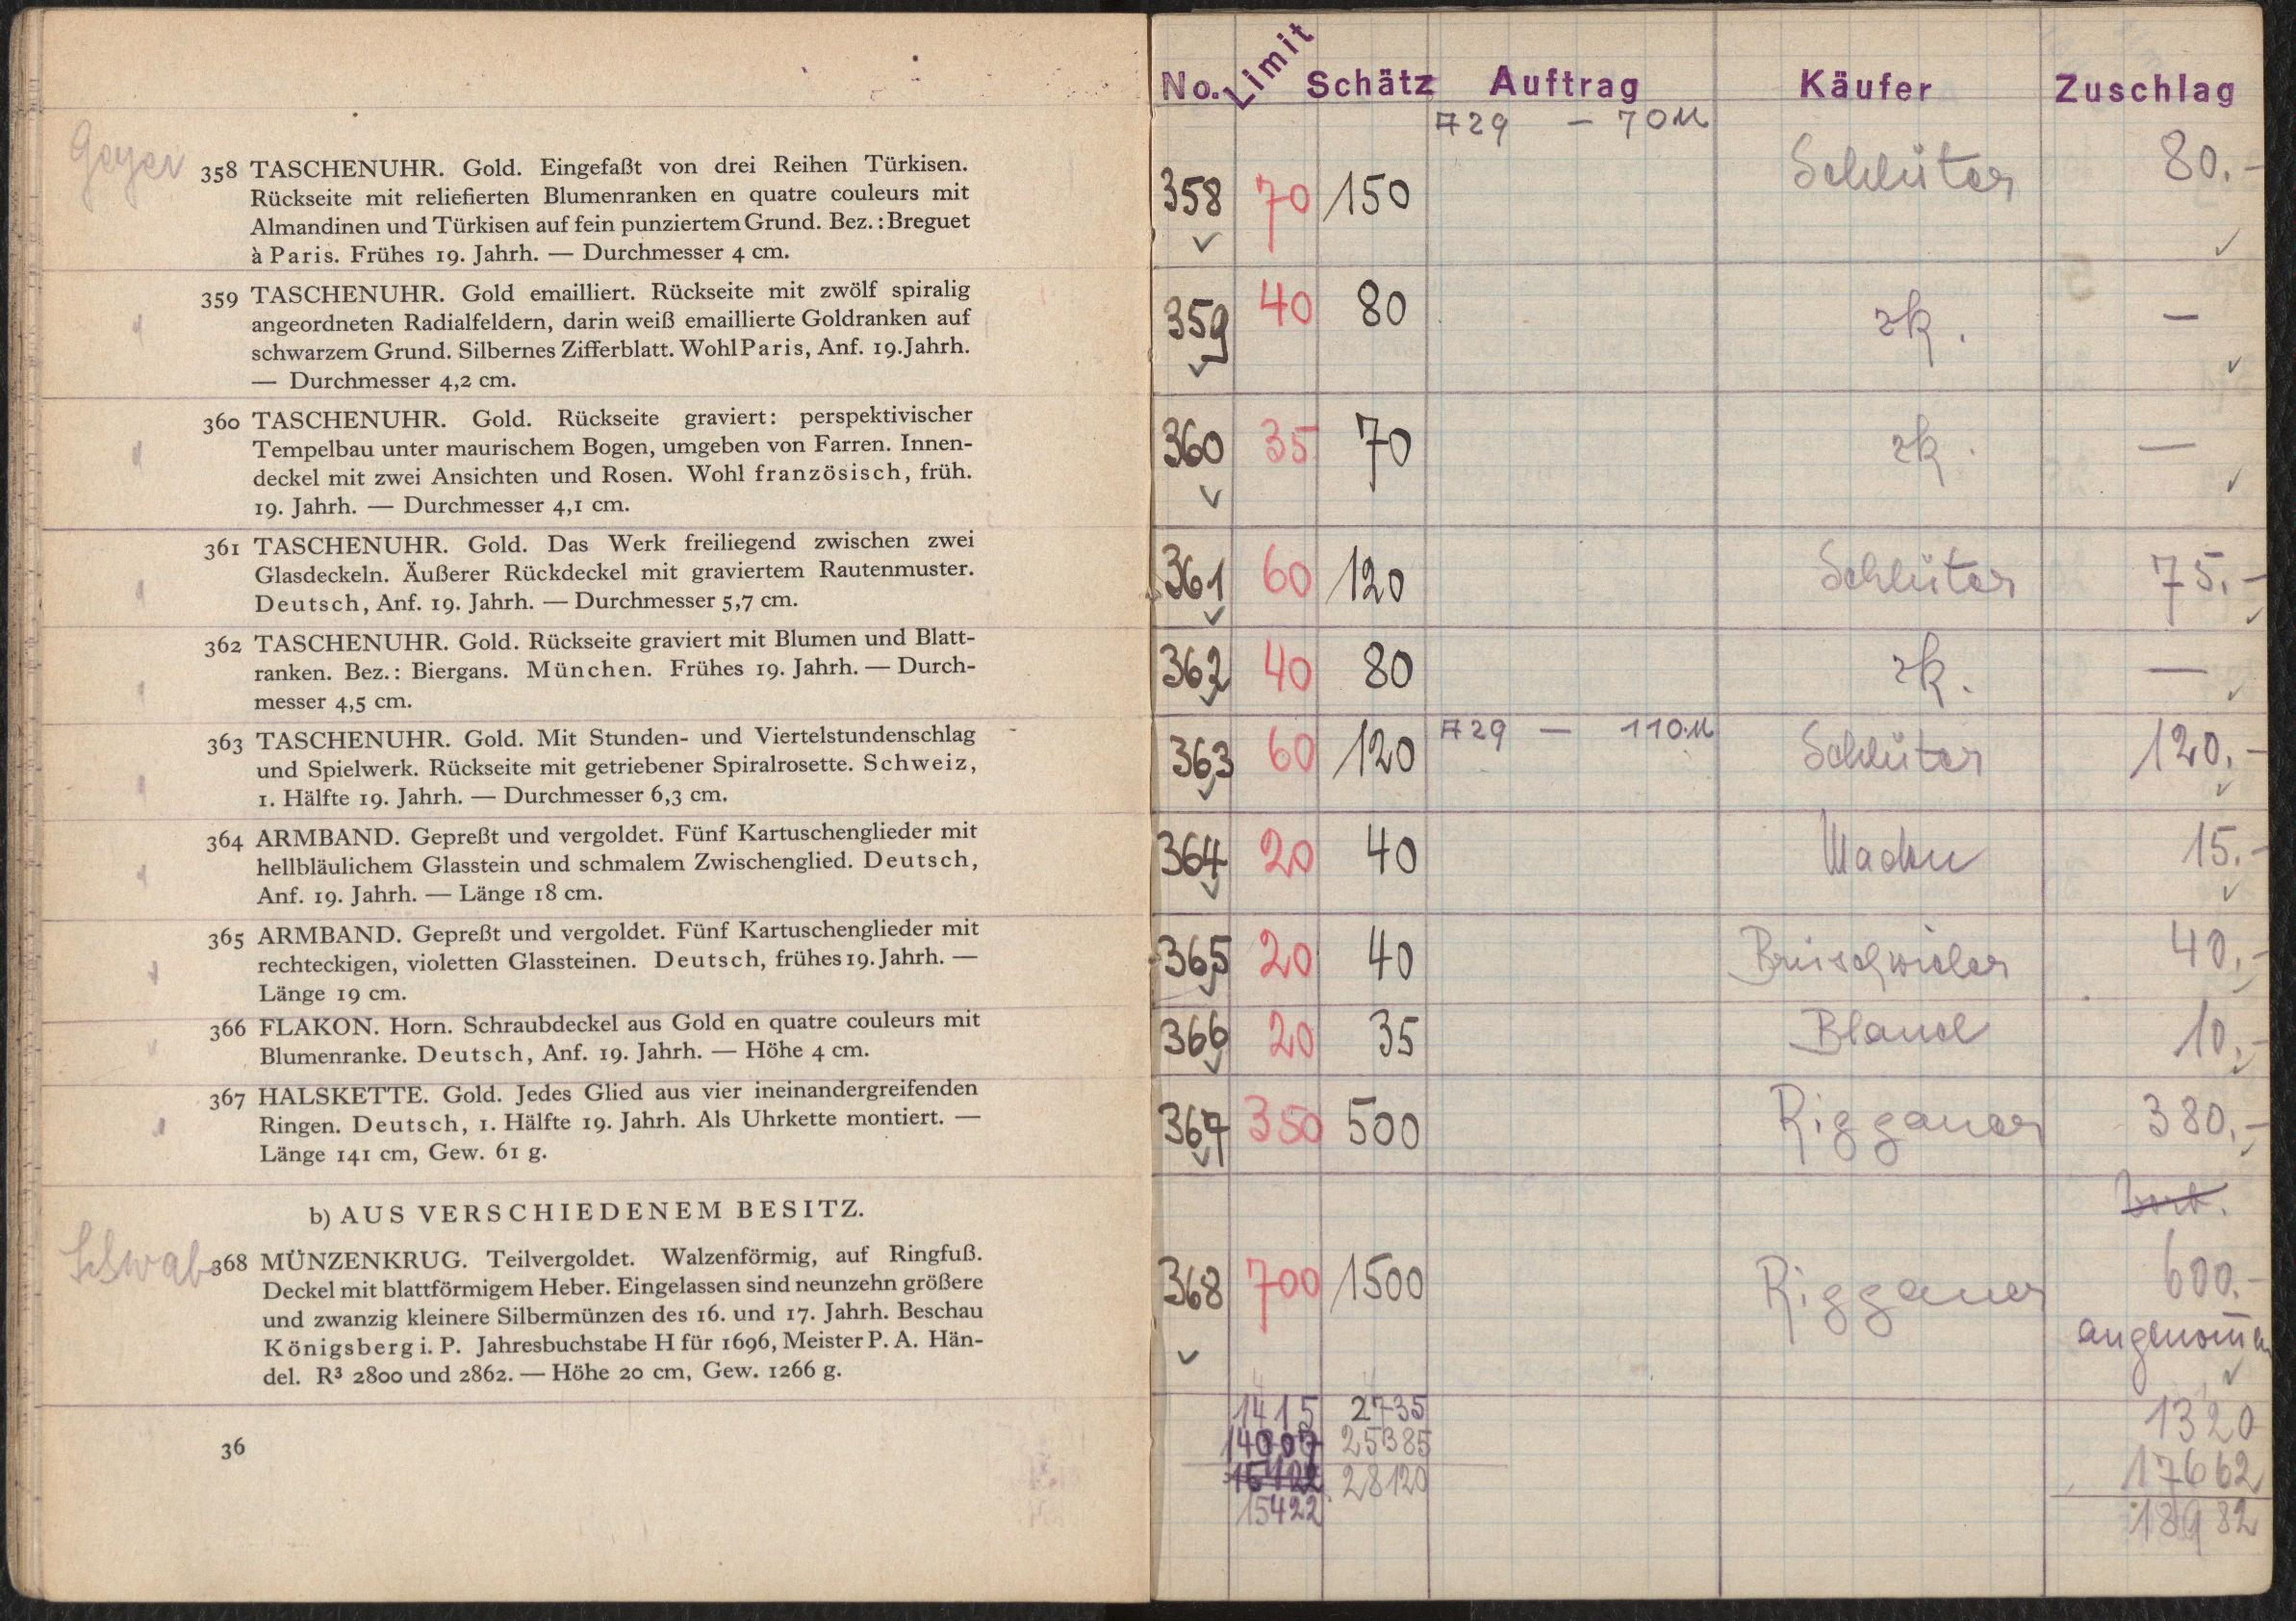 Geyer
358 TASCHENUHR. Gold. Eingefaßt von drei Reihen Türkisen.
Rückseite mit reliefierten Blumenranken en quatre couleurs mit
Almandinen und Türkisen auf fein punziertem Grund. Bez.: Breguet
à Paris. Frühes 19. Jahrh. — Durchmesser 4 cm.
359 TASCHENUHR. Gold emailliert. Rückseite mit zwölf spiralig
angeordneten Radialfeldern, darin weiß emaillierte Goldranken auf
schwarzem Grund. Silbernes Zifferblatt. Wohl Paris, Anf. 19. Jahrh.
— Durchmesser 4,2 cm.
360 TASCHENUHR. Gold. Rückseite graviert: perspektivischer
Tempelbau unter maurischem Bogen, umgeben von Farren. Innen-
deckel mit zwei Ansichten und Rosen. Wohl französisch, früh.
19. Jahrh. — Durchmesser 4,1 cm.
361 TASCHENUHR. Gold. Das Werk freiliegend zwischen zwei
Glasdeckeln. Äußerer Rückdeckel mit graviertem Rautenmuster.
Deutsch, Anf. 19. Jahrh. — Durchmesser 5,7 cm.
362 TASCHENUHR. Gold. Rückseite graviert mit Blumen und Blatt-
ranken. Bez.: Biergans. München. Frühes 19. Jahrh. — Durch-
messer 4,5 cm.
363 TASCHENUHR. Gold. Mit Stunden- und Viertelstundenschlag
und Spielwerk. Rückseite mit getriebener Spiralrosette. Schweiz,
1. Hälfte 19. Jahrh. — Durchmesser 6,3 cm.
364 ARMBAND. Gepreßt und vergoldet. Fünf Kartuschenglieder mit
hellbläulichem Glasstein und schmalem Zwischenglied. Deutsch,
Anf. 19. Jahrh. — Länge 18 cm.
365 ARMBAND. Gepreßt und vergoldet. Fünf Kartuschenglieder mit
rechteckigen, violetten Glassteinen. Deutsch, frühes 19. Jahrh. —
Länge 19 cm.
366 FLAKON. Horn. Schraubdeckel aus Gold en quatre couleurs mit
Blumenranke. Deutsch, Anf. 19. Jahrh. — Höhe 4 cm.
367 HALSKETTE. Gold. Jedes Glied aus vier ineinandergreifenden
Ringen. Deutsch, 1. Hälfte 19. Jahrh. Als Uhrkette montiert. —
Länge 141 cm, Gew. 61 g.
b) AUS VERSCHIEDENEM BESITZ.
Schwab
368 MÜNZENKRUG. Teilvergoldet. Walzenförmig, auf Ringfuß.
Deckel mit blattförmigem Heber. Eingelassen sind neunzehn größere
und zwanzig kleinere Silbermünzen des 16. und 17. Jahrh. Beschau
Königsberg i. P. Jahresbuchstabe H für 1696, Meister P. A. Hän-
del. R³ 2800 und 2862. — Höhe 20 cm, Gew. 1266 g.
36
No. Limit Schätz Auftrag Käufer Zuschlag
729 — 70 M
358 70 150 Schlüter 80.-
359 40 80 rk. —
360 35 70 rk. —
361 60 120 Schlüter 75.-
362 40 80 rk. —
363 60 120 729 — 110 M Schlüter 120.-
364 20 40 15.-
365 20 40 40.-
366 20 35 10.-
367 350 500 Riggauer 380.-
368 700 1500 Riggauer 600.-
angenommen
1415 2735 1320
14007 25385 17662
28120 18982
15422